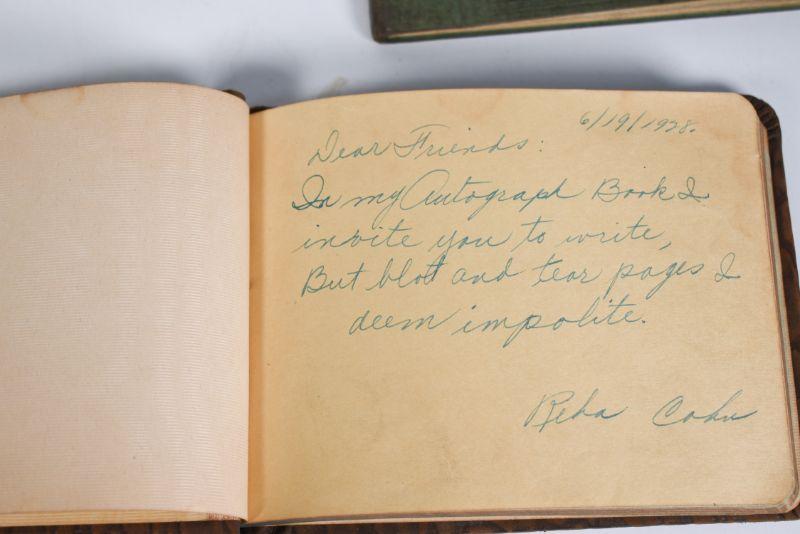 6/19/1928.
Dear Friends:
In my Autograph Book I
invite you to write,
But blott and tear pages I
deem impolite.
Reba Cohn